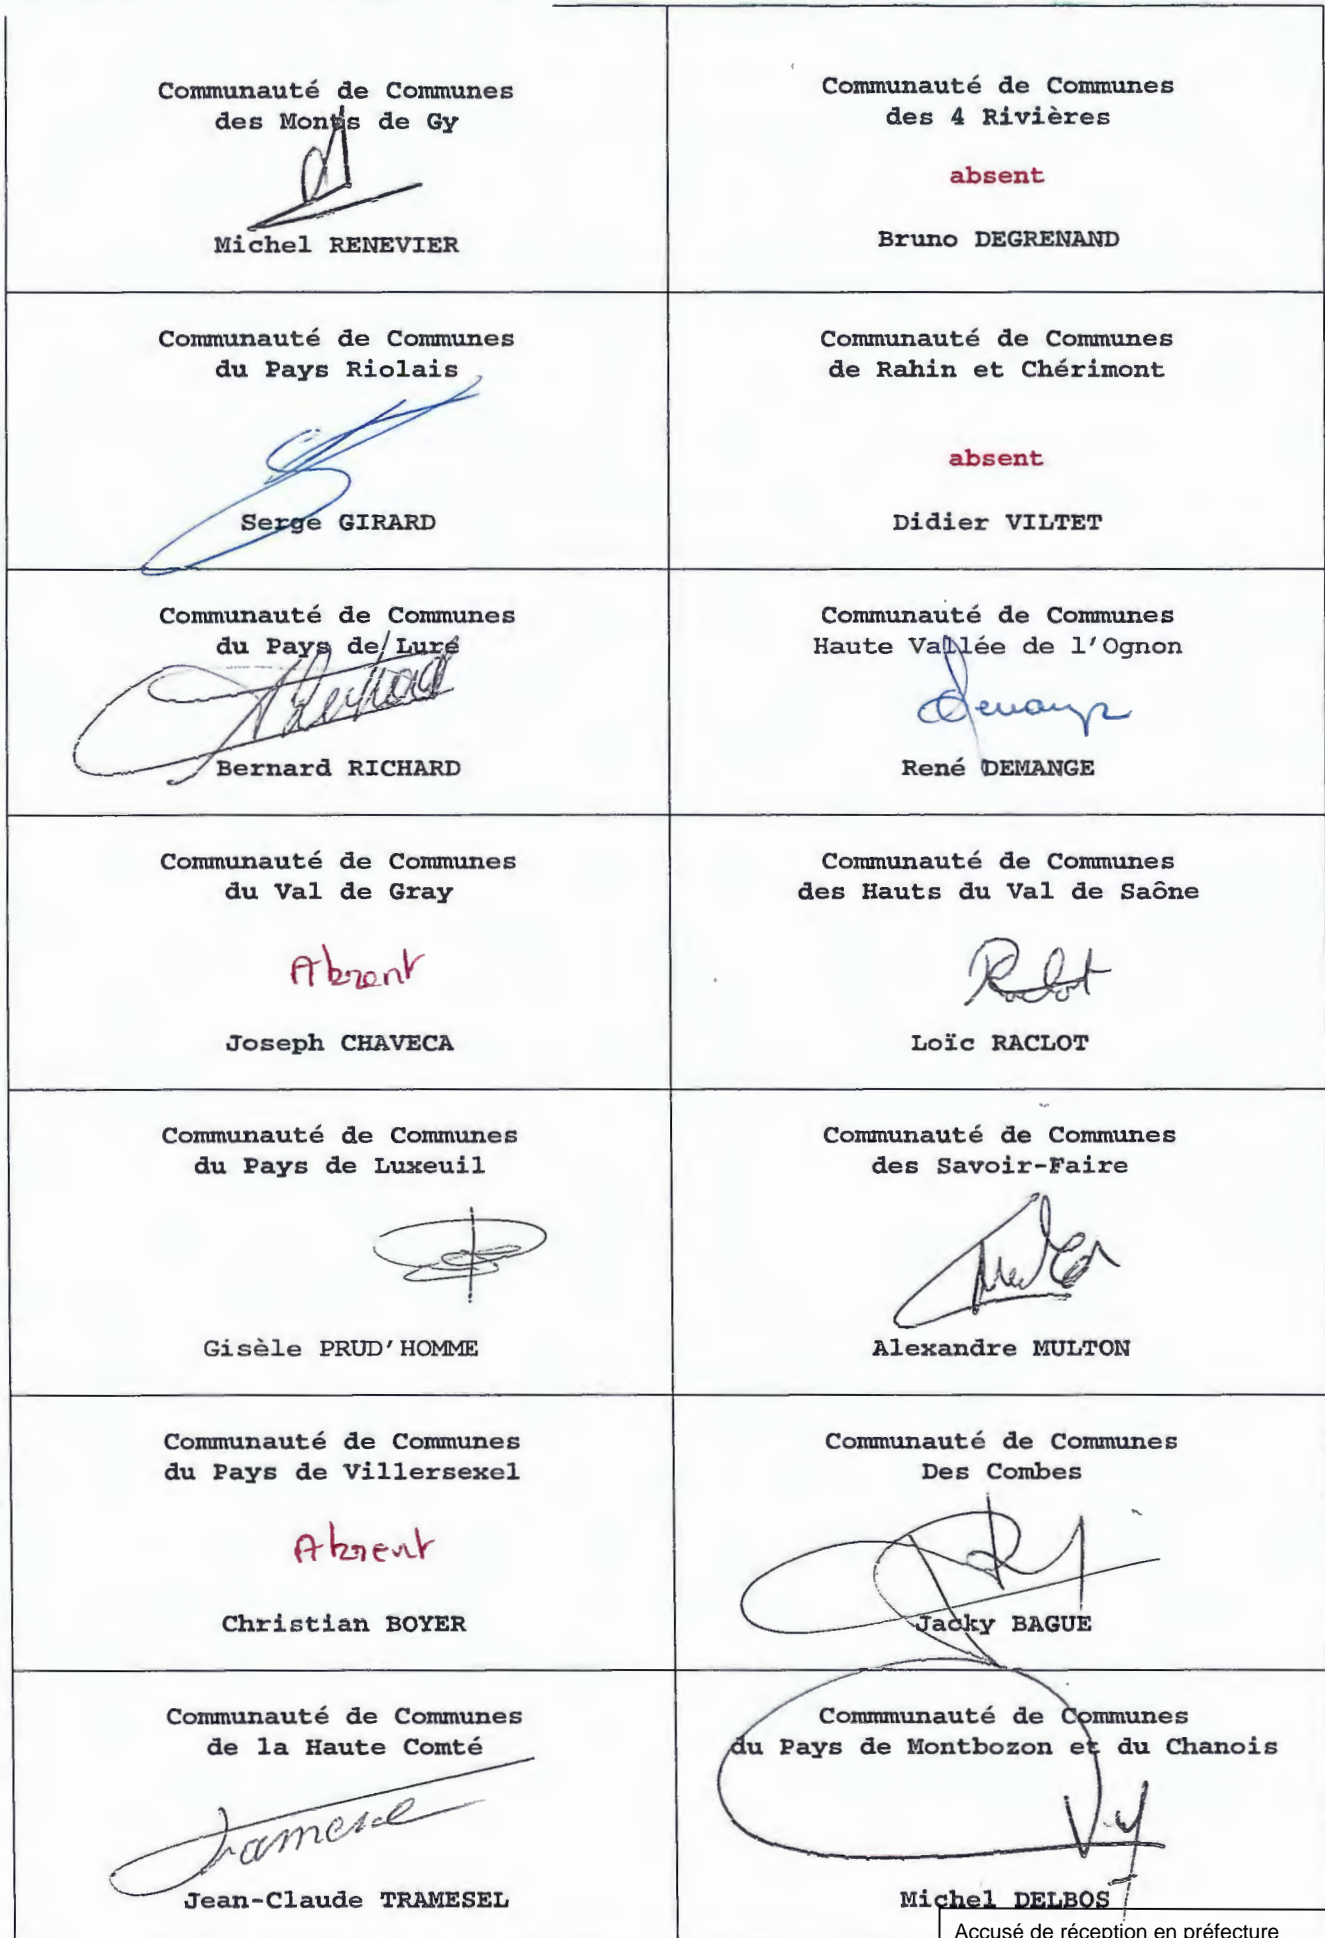 Communauté de Communes
des Monts de Gy
Michel RENEVIER
Communauté de Communes
des 4 Rivières
absent
Bruno DEGRENAND
Communauté de Communes
du Pays Riolais
Serge GIRARD
Communauté de Communes
de Rahin et Chérimont
absent
Didier VILTET
Communauté de Communes
du Pays de Lure
Bernard RICHARD
Communauté de Communes
Haute Vallée de l'Ognon
Demange
René DEMANGE
Communauté de Communes
du Val de Gray
Absent
Joseph CHAVECA
Communauté de Communes
des Hauts du Val de Saône
Raclot
Loïc RACLOT
Communauté de Communes
du Pays de Luxeuil
Gisèle PRUD'HOMME
Communauté de Communes
des Savoir-Faire
Alexandre MULTON
Communauté de Communes
du Pays de Villersexel
Absent
Christian BOYER
Communauté de Communes
Des Combes
Jacky BAGUE
Communauté de Communes
de la Haute Comté
Jean-Claude TRAMESEL
Commmunauté de Communes
du Pays de Montbozon et du Chanois
Michel DELBOS
Accusé de réception en préfecture